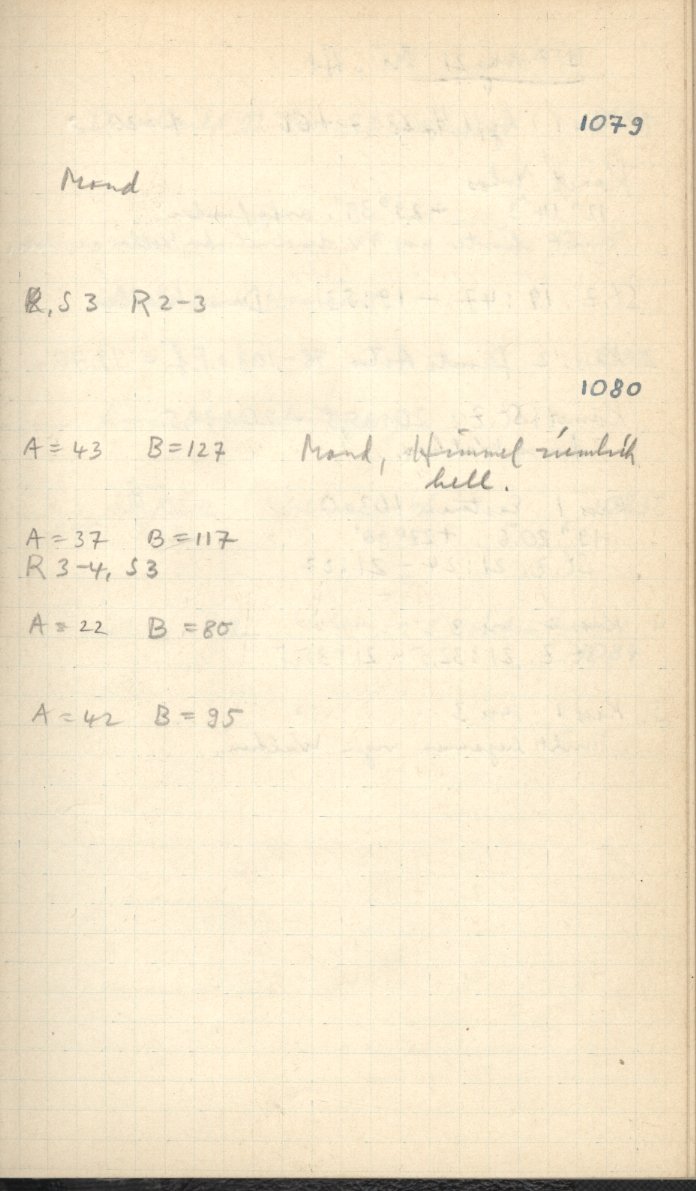 1079
Mond
R, S 3 R 2-3
1080
A = 43 B = 127 Mond, Himmel ziemlich
hell.
A = 37 B = 117
R 3-4, S3
A = 22 B = 80
A = 42 B = 95